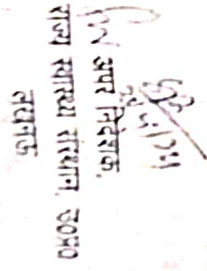 अपर निदेशक,
राज्य स्वास्थ्य संस्थान, उ०प्र०
लखनऊ